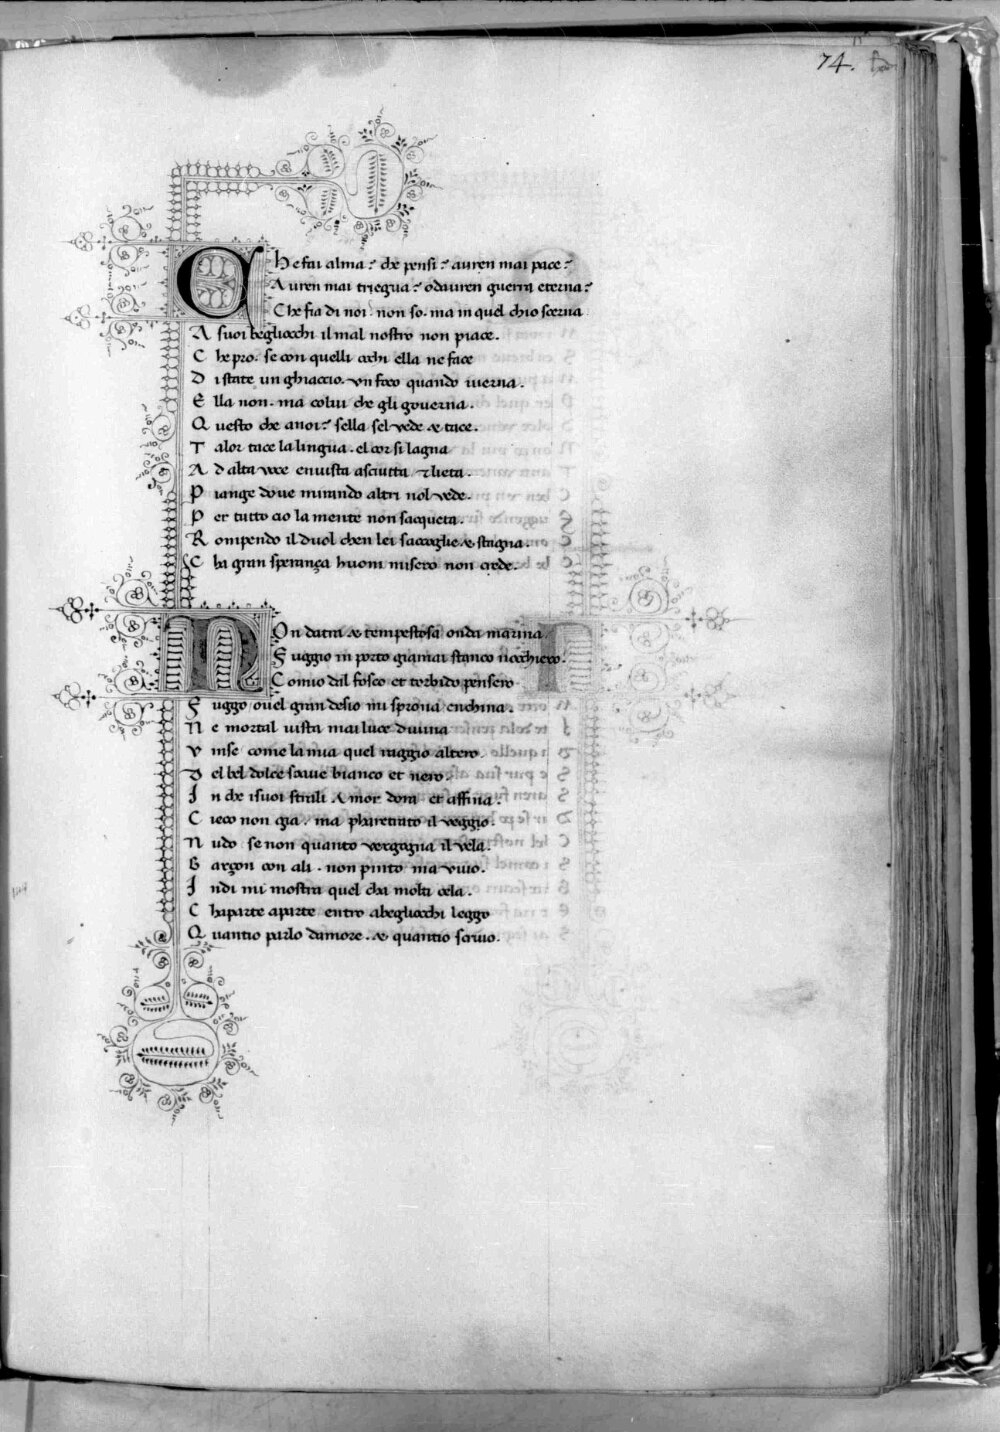 74.
C he fai alma? che pensi? auren mai pace?
A uren mai triegua? o dauren guerra eterna?
C he fia di noi? non so. ma in quel chio scerna
A suoi begliocchi il mal nostro non piace.
C he pro. se con quelli occhi ella ne face
D i state un ghiaccio. vn foco quando iuerna.
E lla non. ma colui che gli gouerna.
Q uesto che anoi? sella sel vede & tace.
T alor tace la lingua. el cor si lagna
A d alta voce en uista asciutta & lieta.
P iange doue mirando altri nol vede.
P er tutto cio la mente non sacqueta.
R ompendo il duol chen lei saccoglie & stagna.
C ha gran sperança huom misero non crede.
N On datra & tempestosa onda marina
F uggio in porto giamai stanco nocchiero.
C omio dal fosco et torbido pensero
F uggo ouel gran desio mi sprona enchina.
N e mortal uista mai luce diuina
V inse come la mia quel raggio altero
D el bel dolce soaue bianco et nero.
I n che isuoi strali Amor dora et affina.
C ieco non gia. ma pharetrato il veggio.
N udo se non quanto vergogna il vela.
G arçon con ali. non pinto ma viuo.
I ndi mi mostra quel cha molti cela.
C haparte aparte entro abegliocchi leggo
Q uantio parlo damore. & quantio scriuo.